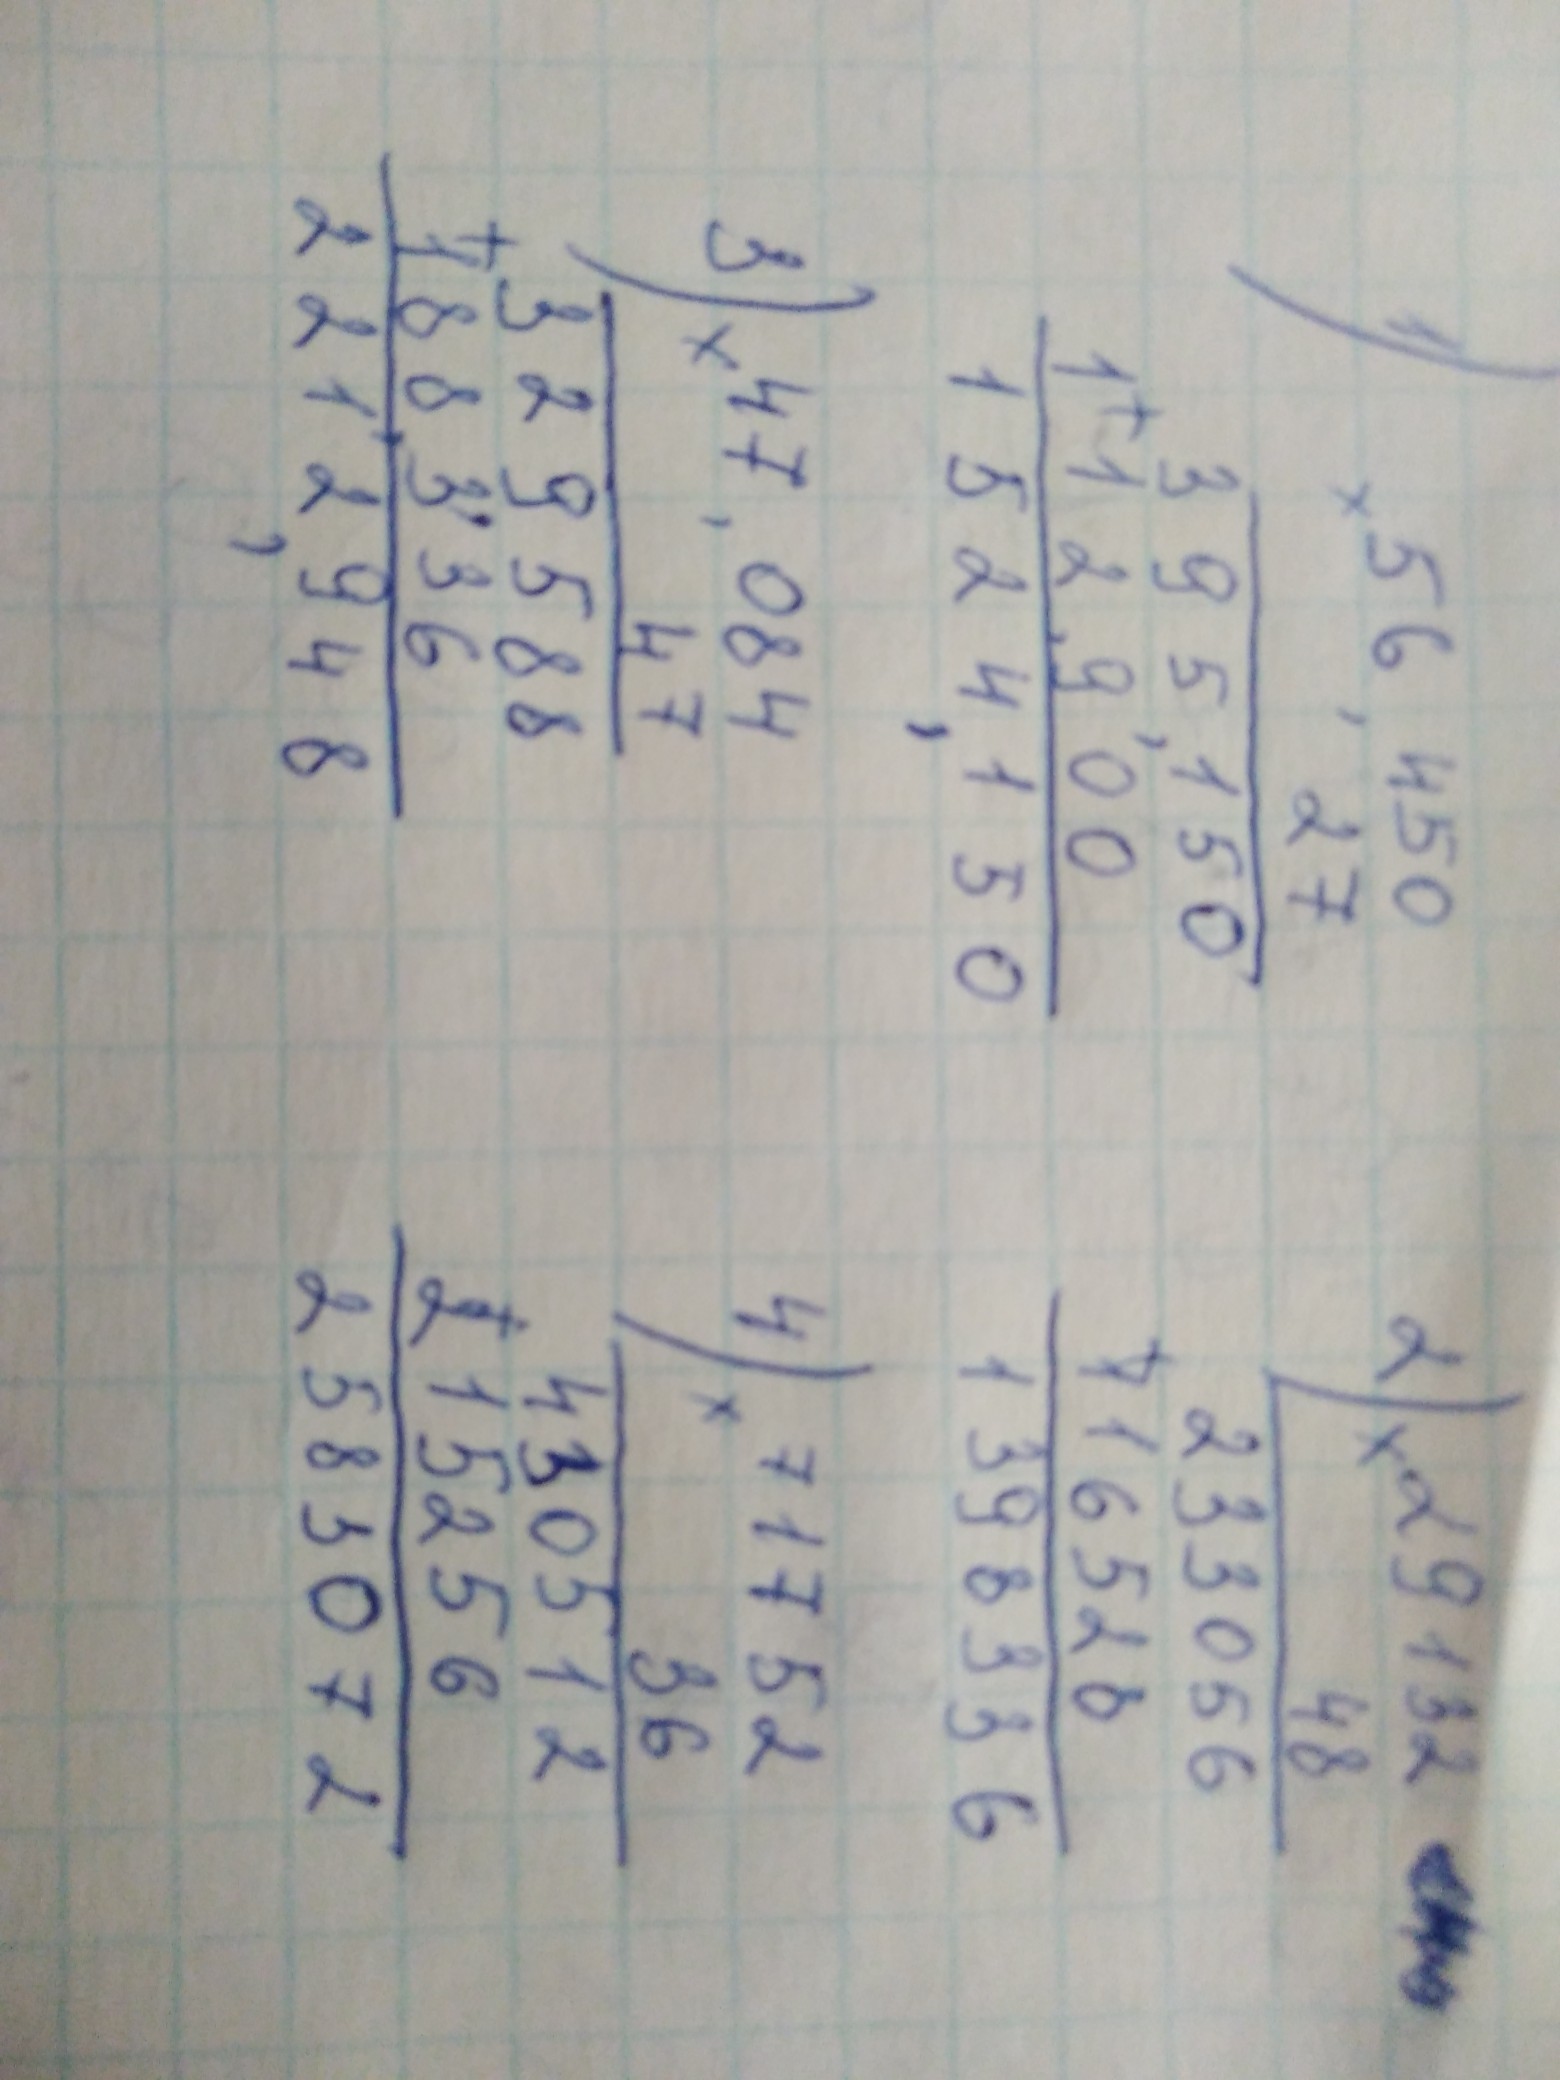 1)
× 56,450
27
395,150
+
112,900
1524,150
2) × 29132
48
233056
+
116528
1398336
3) × 47,084
47
329588
+
188,336
221,2,948
4) × 71752
36
430512
+
215256
2583072